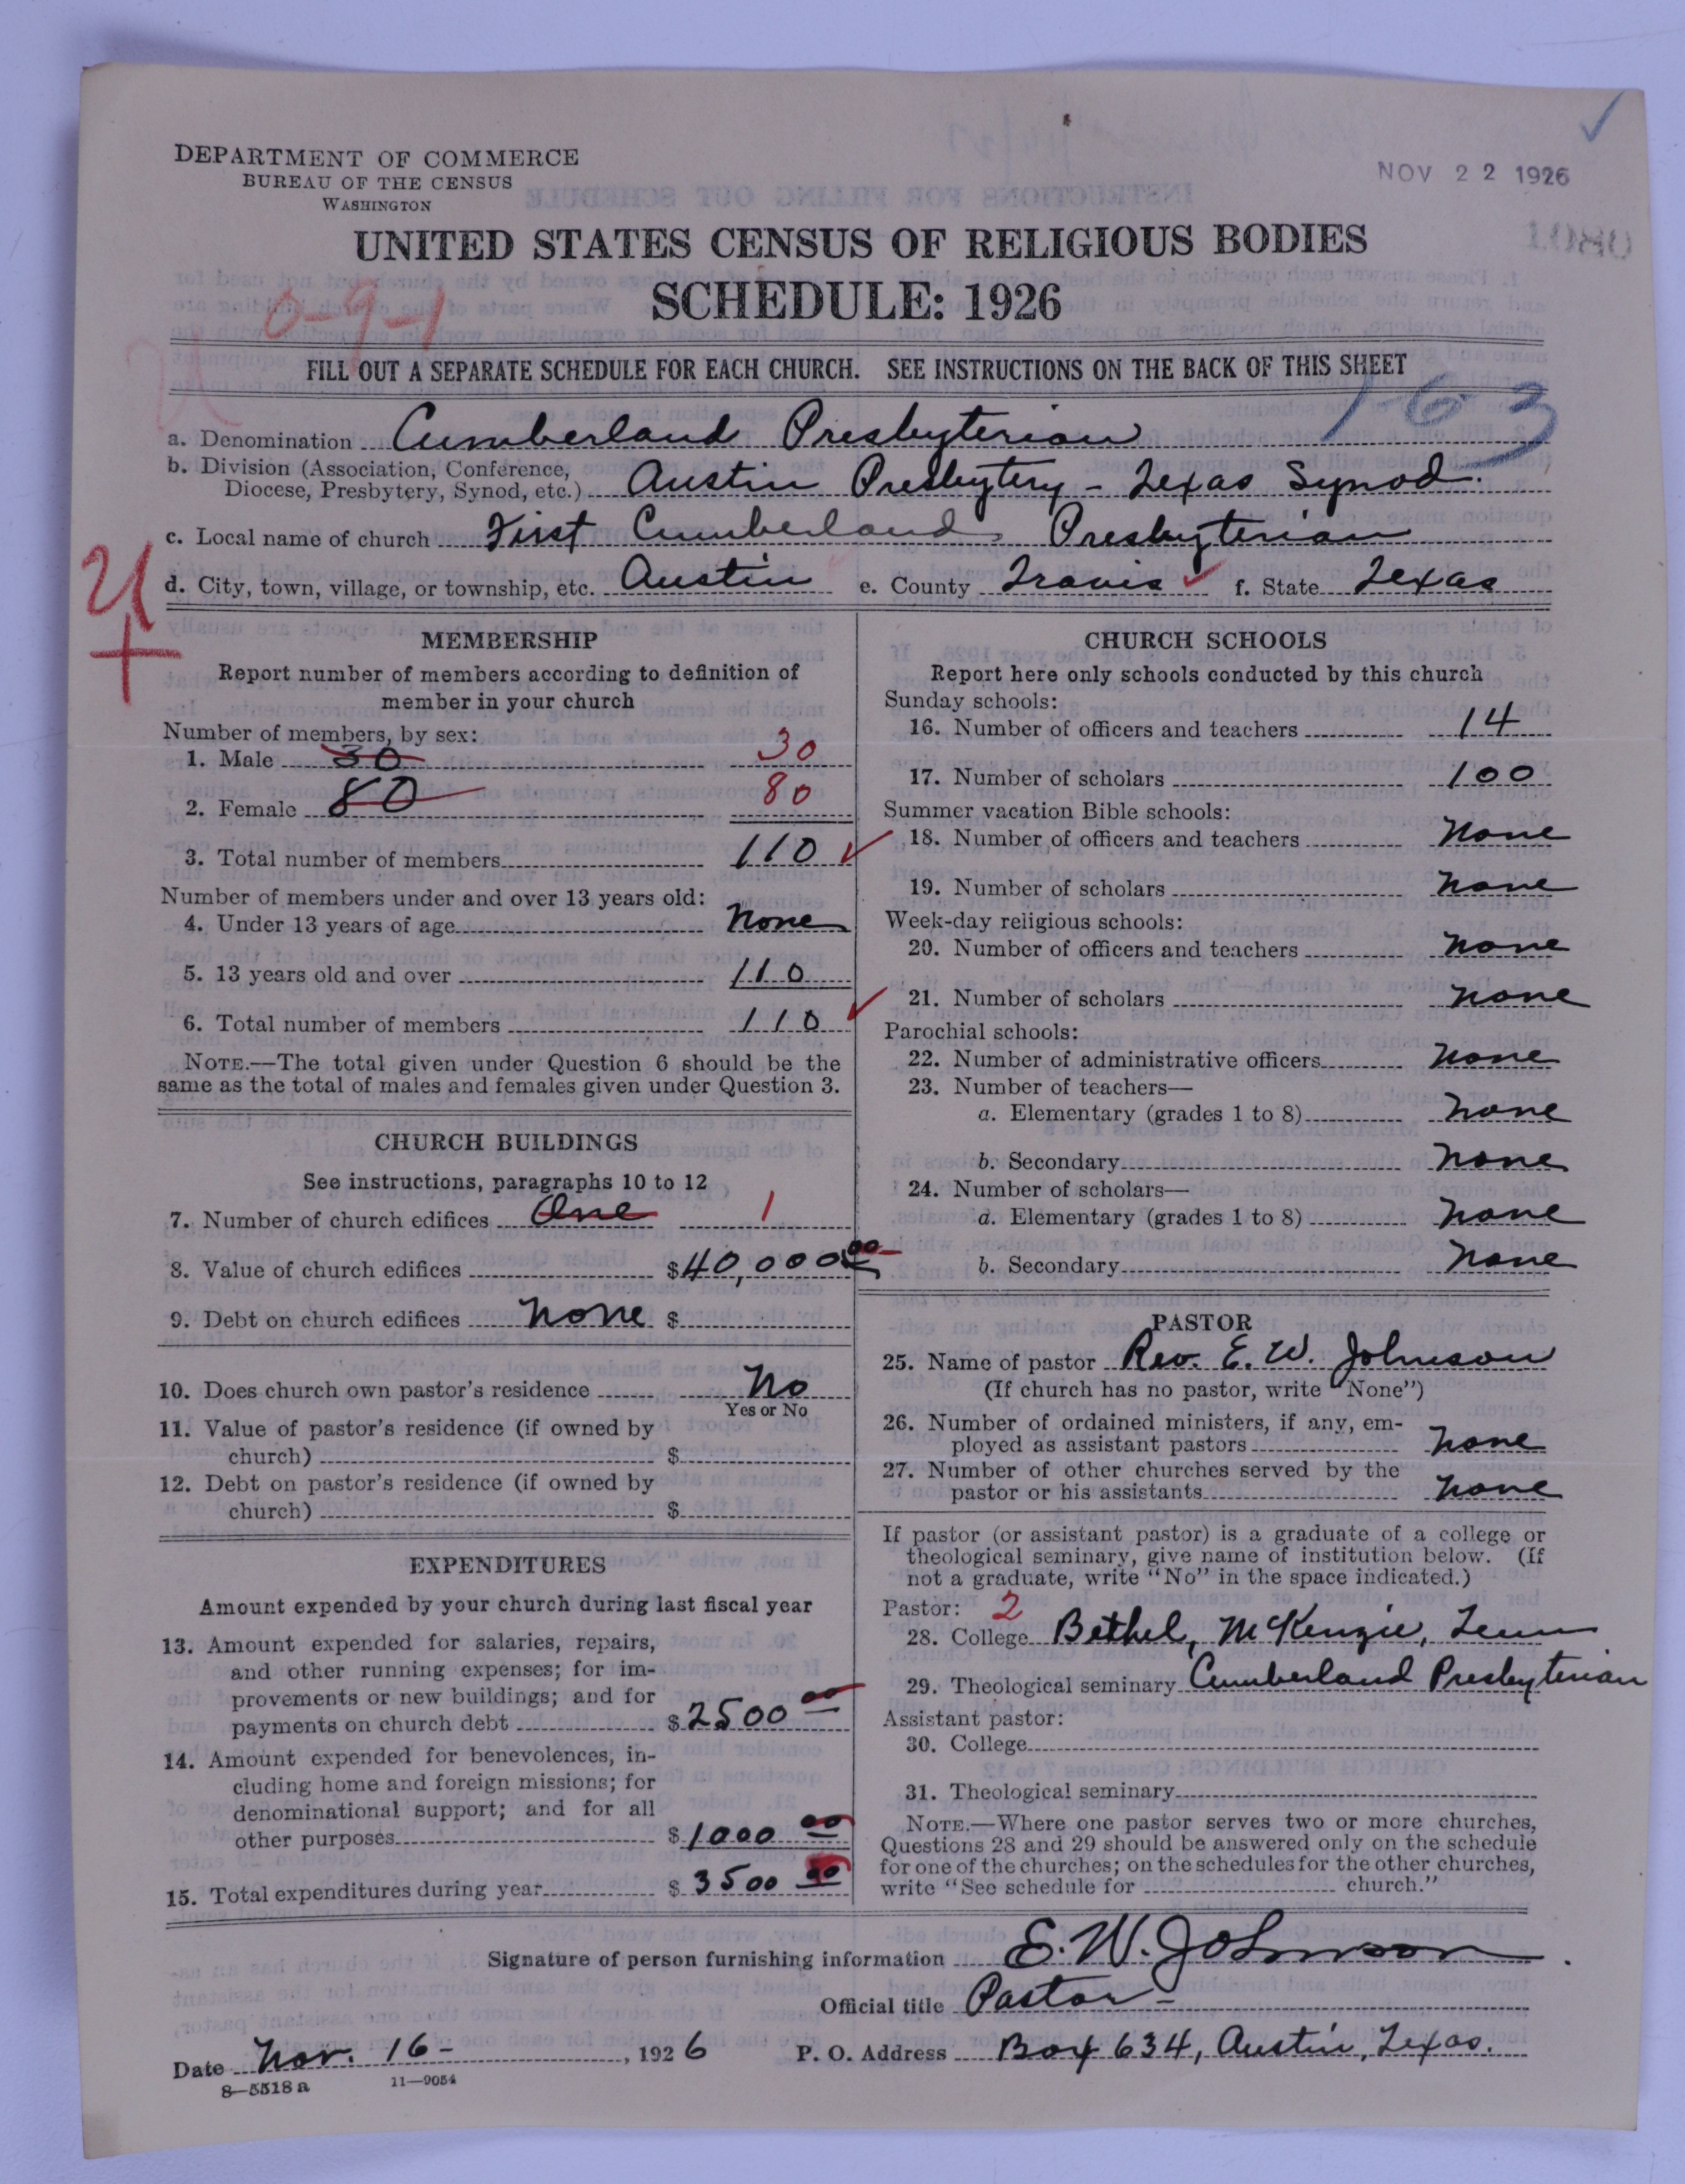 DEPARTMENT OF COMMERCE
BUREAU OF THE CENSUS
WASHINGTON
NOV 22 1926
UNITED STATES CENSUS OF RELIGIOUS BODIES
SCHEDULE: 1926
0-9-1
FILL OUT A SEPARATE SCHEDULE FOR EACH CHURCH. SEE INSTRUCTIONS ON THE BACK OF THIS SHEET
1-63
a. Denomination Cumberland Presbyterian
b. Division (Association, Conference,
Diocese, Presbytery, Synod, etc.) Austin Presbytery - Texas Synod.
c. Local name of church First Cumberland Presbyterian
d. City, town, village, or township, etc. Austin e. County Travis f. State Texas
MEMBERSHIP
Report number of members according to definition of
member in your church
Number of members, by sex:
1. Male 30 30
2. Female 80 80
3. Total number of members 110
Number of members under and over 13 years old:
4. Under 13 years of age None
5. 13 years old and over 110
6. Total number of members 110
NOTE.—The total given under Question 6 should be the
same as the total of males and females given under Question 3.
CHURCH BUILDINGS
See instructions, paragraphs 10 to 12
7. Number of church edifices One 1
8. Value of church edifices $40,000 00
9. Debt on church edifices None $
10. Does church own pastor's residence No
Yes or No
11. Value of pastor's residence (if owned by
church) $
12. Debt on pastor's residence (if owned by
church) $
EXPENDITURES
Amount expended by your church during last fiscal year
13. Amount expended for salaries, repairs,
and other running expenses; for im-
provements or new buildings; and for
payments on church debt $2500 00
14. Amount expended for benevolences, in-
cluding home and foreign missions; for
denominational support; and for all
other purposes $1000 00
15. Total expenditures during year $3500 00
CHURCH SCHOOLS
Report here only schools conducted by this church
Sunday schools:
16. Number of officers and teachers 14
17. Number of scholars 100
Summer vacation Bible schools:
18. Number of officers and teachers None
19. Number of scholars None
Week-day religious schools:
20. Number of officers and teachers None
21. Number of scholars None
Parochial schools:
22. Number of administrative officers None
23. Number of teachers—
a. Elementary (grades 1 to 8) None
b. Secondary None
24. Number of scholars—
a. Elementary (grades 1 to 8) None
b. Secondary None
PASTOR
25. Name of pastor Rev. E. W. Johnson
(If church has no pastor, write "None")
26. Number of ordained ministers, if any, em-
ployed as assistant pastors None
27. Number of other churches served by the
pastor or his assistants None
If pastor (or assistant pastor) is a graduate of a college or
theological seminary, give name of institution below. (If
not a graduate, write "No" in the space indicated.)
Pastor: 2
28. College Bethel, McKenzie, Tenn
29. Theological seminary Cumberland Presbyterian
Assistant pastor:
30. College
31. Theological seminary
NOTE.—Where one pastor serves two or more churches,
Questions 28 and 29 should be answered only on the schedule
for one of the churches; on the schedules for the other churches,
write "See schedule for church."
Signature of person furnishing information E. W. Johnson
Official title Pastor
Date Nov. 16 - , 1926 P. O. Address Box 634, Austin, Texas.
8—5518 a 11—9054